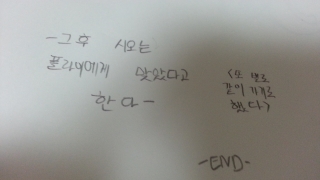 -그 후 시오는
플라비에게 맞았다고
한다-
<또 별로
같이 가기로
했다>
-END-